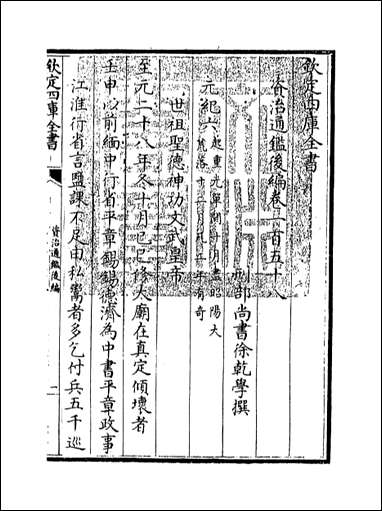 欽定四庫全書
資治通鑑後編卷一百五十八
刑部尚書徐乾學撰
元紀六起重光單閼十月盡昭陽大
荒落十二月凡二年有奇
世祖聖德神功文武皇帝
至元二十八年冬十月己巳修太廟在真定傾壞者
壬申以前緬中行省平章錫錫德濟為中書平章政事
江淮行省言鹽課不足由私鬻者多乞付兵五千巡
欽定四庫全書
資治通鑑後編